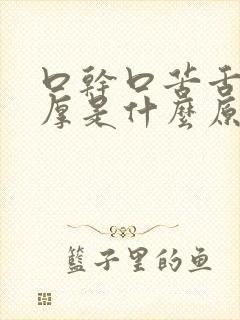 口幹口苦舌
厚是什麼原
籃子里的鱼